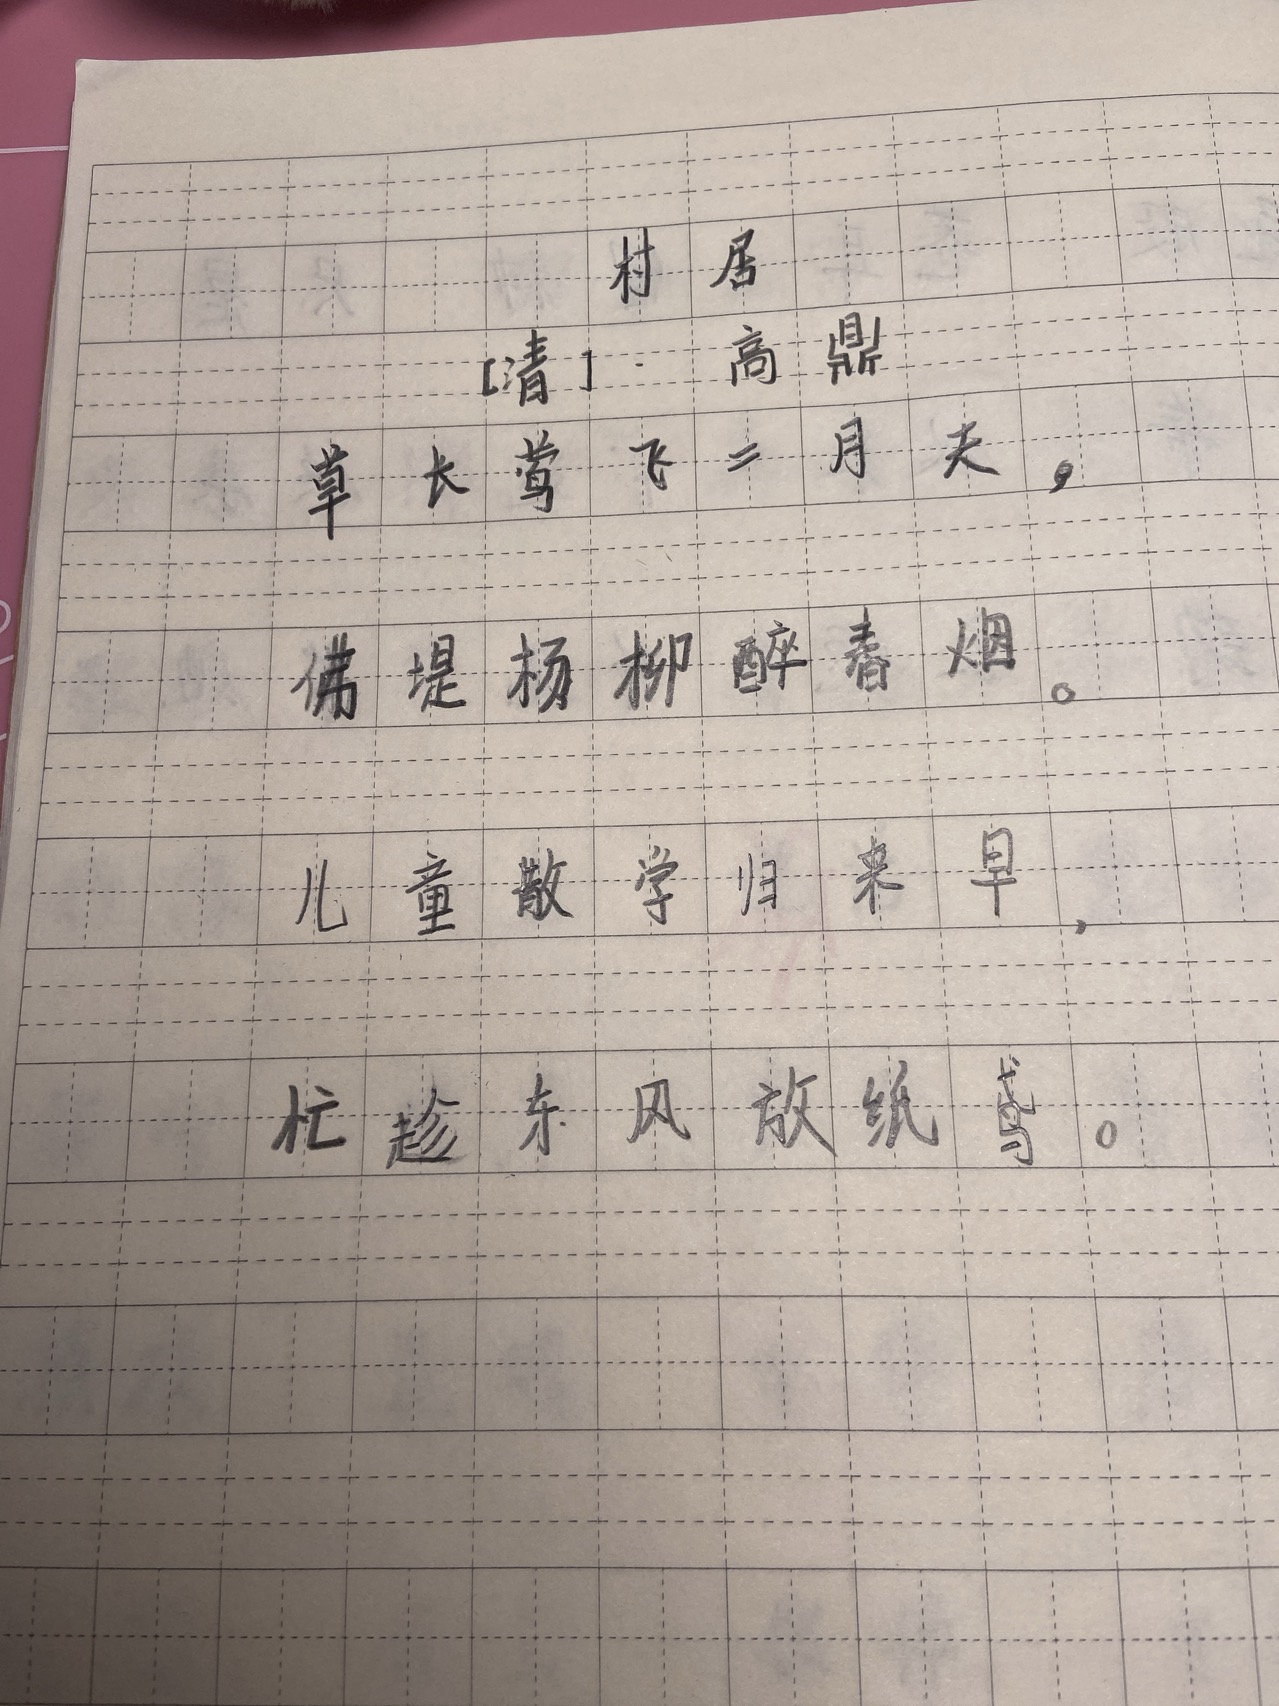 村居
[清]·高鼎
草长莺飞二月夫，
佛堤杨柳醉春烟。
儿童散学归来早，
忙趁东风放纸鸢。